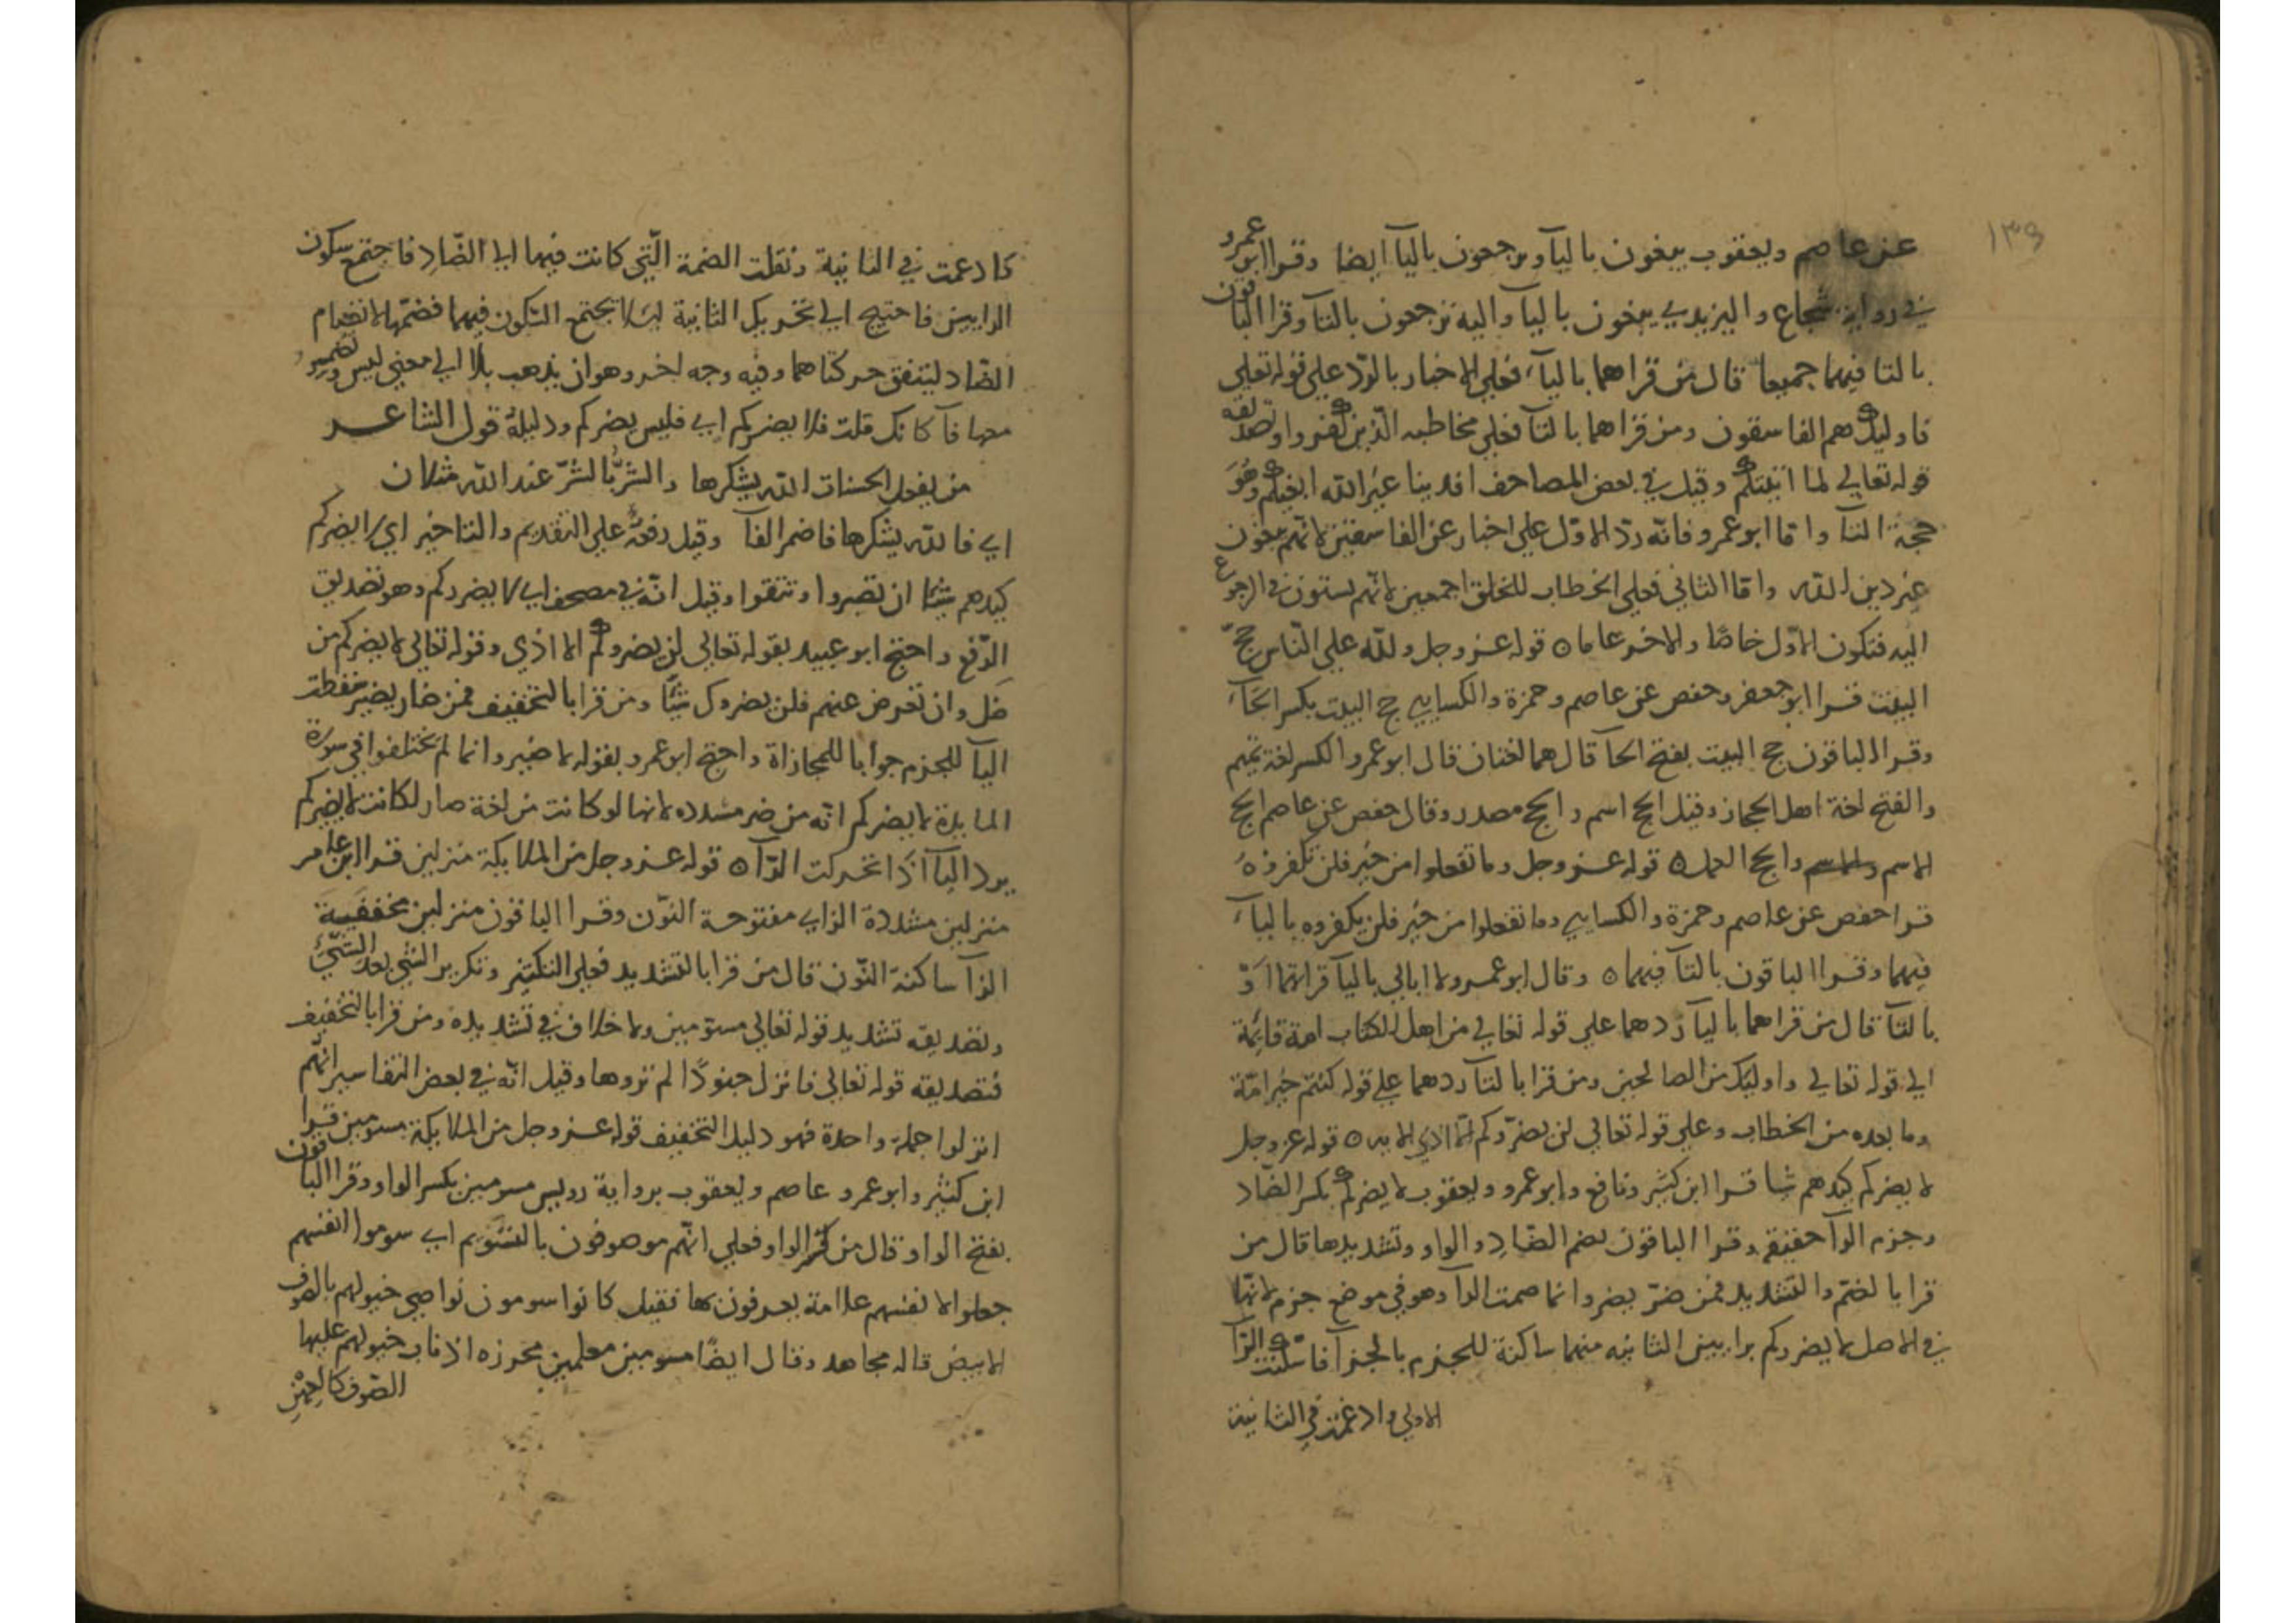 ١٣٩
عن عاصم ويعقوب يبغون باليآ ويرجعون باليآ ايضا وقرا ابو عمرو
في رواية شجاع واليزيدي يبغون باليآ واليه ترجعون بالتآ وقرا الباقون
بالتا فيهما جميعا قال من قراهما باليآ فعلي الاخبار بالردّ علي قوله تعلي
فاوليك هم الفاسقون ومن قراهما بالتآ فعلي مخاطبه الّذين كفروا وتصديقه
قوله تعالي لما اتيتكم وقيل في بعض المصاحف افدينا غير الله ابغيكم وهو
حجة التآ وامّا ابو عمرو فانّه ردّ الاوّل علي اخبار عن الفاسقين لانّهم يبغون
غير دين الله وامّا الثاني فعلي الخطاب للخلق اجمعين لانّهم يستون في الرجوع
اليه فتكون الاوّل خاصّا والاخر عاما ه قوله عز وجل ولله علي النّاس حجّ
البيت قرا ابو جعفر وحفص عن عاصم وحمزة والكسايي حج البيت بكسر الحآ
وقرا الباقون حج البيت بفتح الحآ قال هما لغتان قال ابو عمرو الكسر لغة تميم
والفتح لغة اهل الحجاز وقيل الحج اسم والحج مصدر وقال حفص عن عاصم الحج
الاسم والحج العمل ه قوله عز وجل وما تفعلوا من خير فلن تكفروه
قرا حفص عن عاصم وحمزة والكسايي وما تفعلوا من خير فلن يكفروه باليآ
فيهما وقرا الباقون بالتآ فيهما ه وقال ابو عمرو لا ابالي باليآ قراتهما اوْ
بالتآ قال من قراهما باليآ ردهما علي قوله تعالي من اهل الكتاب امة قايمة
الي قوله تعالي واوليك من الصالحين ومن قرا بالتآ ردهما علي قوله كنتم خير امّة
وما بعده من الخطاب وعلي قوله تعالي لن يضرّوكم الّا اذي الايه ه قوله عز وجل
لا يضركم كيدهم شيا قرا ابن كثير ونافع وابو عمرو ويعقوب لا يضركم بكسر الضّاد
وجزم الرآ خفيفة وقرا الباقون بضم الضّاد والراو وتشديدها قال من
قرا بالضمّ والتشديد فمن ضرّ يضر وانما ضمت الرآ وهو في موضع جزم لانّها
في الاصل لا يضرركم برايين الثانيه منهما ساكنة للجزم بالجزآ فاسكنت الرّآ
الاولي وادغمت في الثانية
كادغمت في الثانية ونقلت الضمة الّتي كانت فيها الي الضّاد فاجتمع سكون
الرايين فاحتيج الي تحريك الثانية ليلا يجتمع السكون فيهما فضمّها لانضمام
الضّاد ليتفق حركتاهما وفيه وجه اخر وهو ان يذهب بلا الي معني ليس وتضمير
معها فآ كانك قلت فلا يضركم اي فليس يضركم ودليله قول الشاعر
من يفعل الحسنات الله يشكرها والشرّ بالشرّ عند الله مثلان
اي فالله يشكرها فاضمر الفآ وقيل رفعه علي التقديم والتاخير اي لا يضركم
كيدهم شيئا ان تصبروا وتتقوا وقيل انّه في مصحف ابي لا يضرركم وهو تصديق
الرّفع واحتج ابو عبيد بقوله تعالي لن يضروكم الا اذي وقوله تعالي لا يضركم من
ضل وان تعرض عنهم فلن يضروك شيئًا ومن قرا بالتخفيف فمن ضار يضير سقطت
اليآ للجزم جوابا للمجازاة واحتج ابو عمرو بقوله لا ضير وانما لم يختلفوا في سورة
المايدة لا يضركم انّه من ضر مشدده لانها لو كانت من لغة ضار لكانت لا يضيركم
يرد اليآ اذا تحركت الرّآ ه قوله عز وجل من الملايكة منزلين قرا ابن عامر
منزلين مشددة الزاي مفتوحة النّون وقرا الباقون منزلين مخففة
الزآ ساكنة النّون قال من قرا بالتشديد فعلي التكثير وتكرير الشي بعد الشّيْ
وتصديقه تشديد قوله تعالي مسوّمين ولا خلاف في تشديده ومن قرا بالتخفيف
فتصديقه قوله تعالي فانزل جنودًا لم تروها وقيل انّه في بعض التفاسير انّهم
انزلوا جملة واحدة فهو دليل التخفيف قوله عز وجل من الملايكة مسومين قرا
ابن كثير وابو عمرو عاصم ويعقوب برواية رويس مسومين بكسر الواو وقرا الباقون
بفتح الواو قال من كسر الواو فعلي انّهم موصوفون بالتسويم اي سوموا انفسهم
جعلوا لانفسهم علامة يعرفون بها فقيل كانوا سومون نواصي خيولهم بالصوف
الابيض قاله مجاهد وقال ايضًا مسومين معلمين محرزه اذناب خيولهم عليها
الصّوف كالعهن